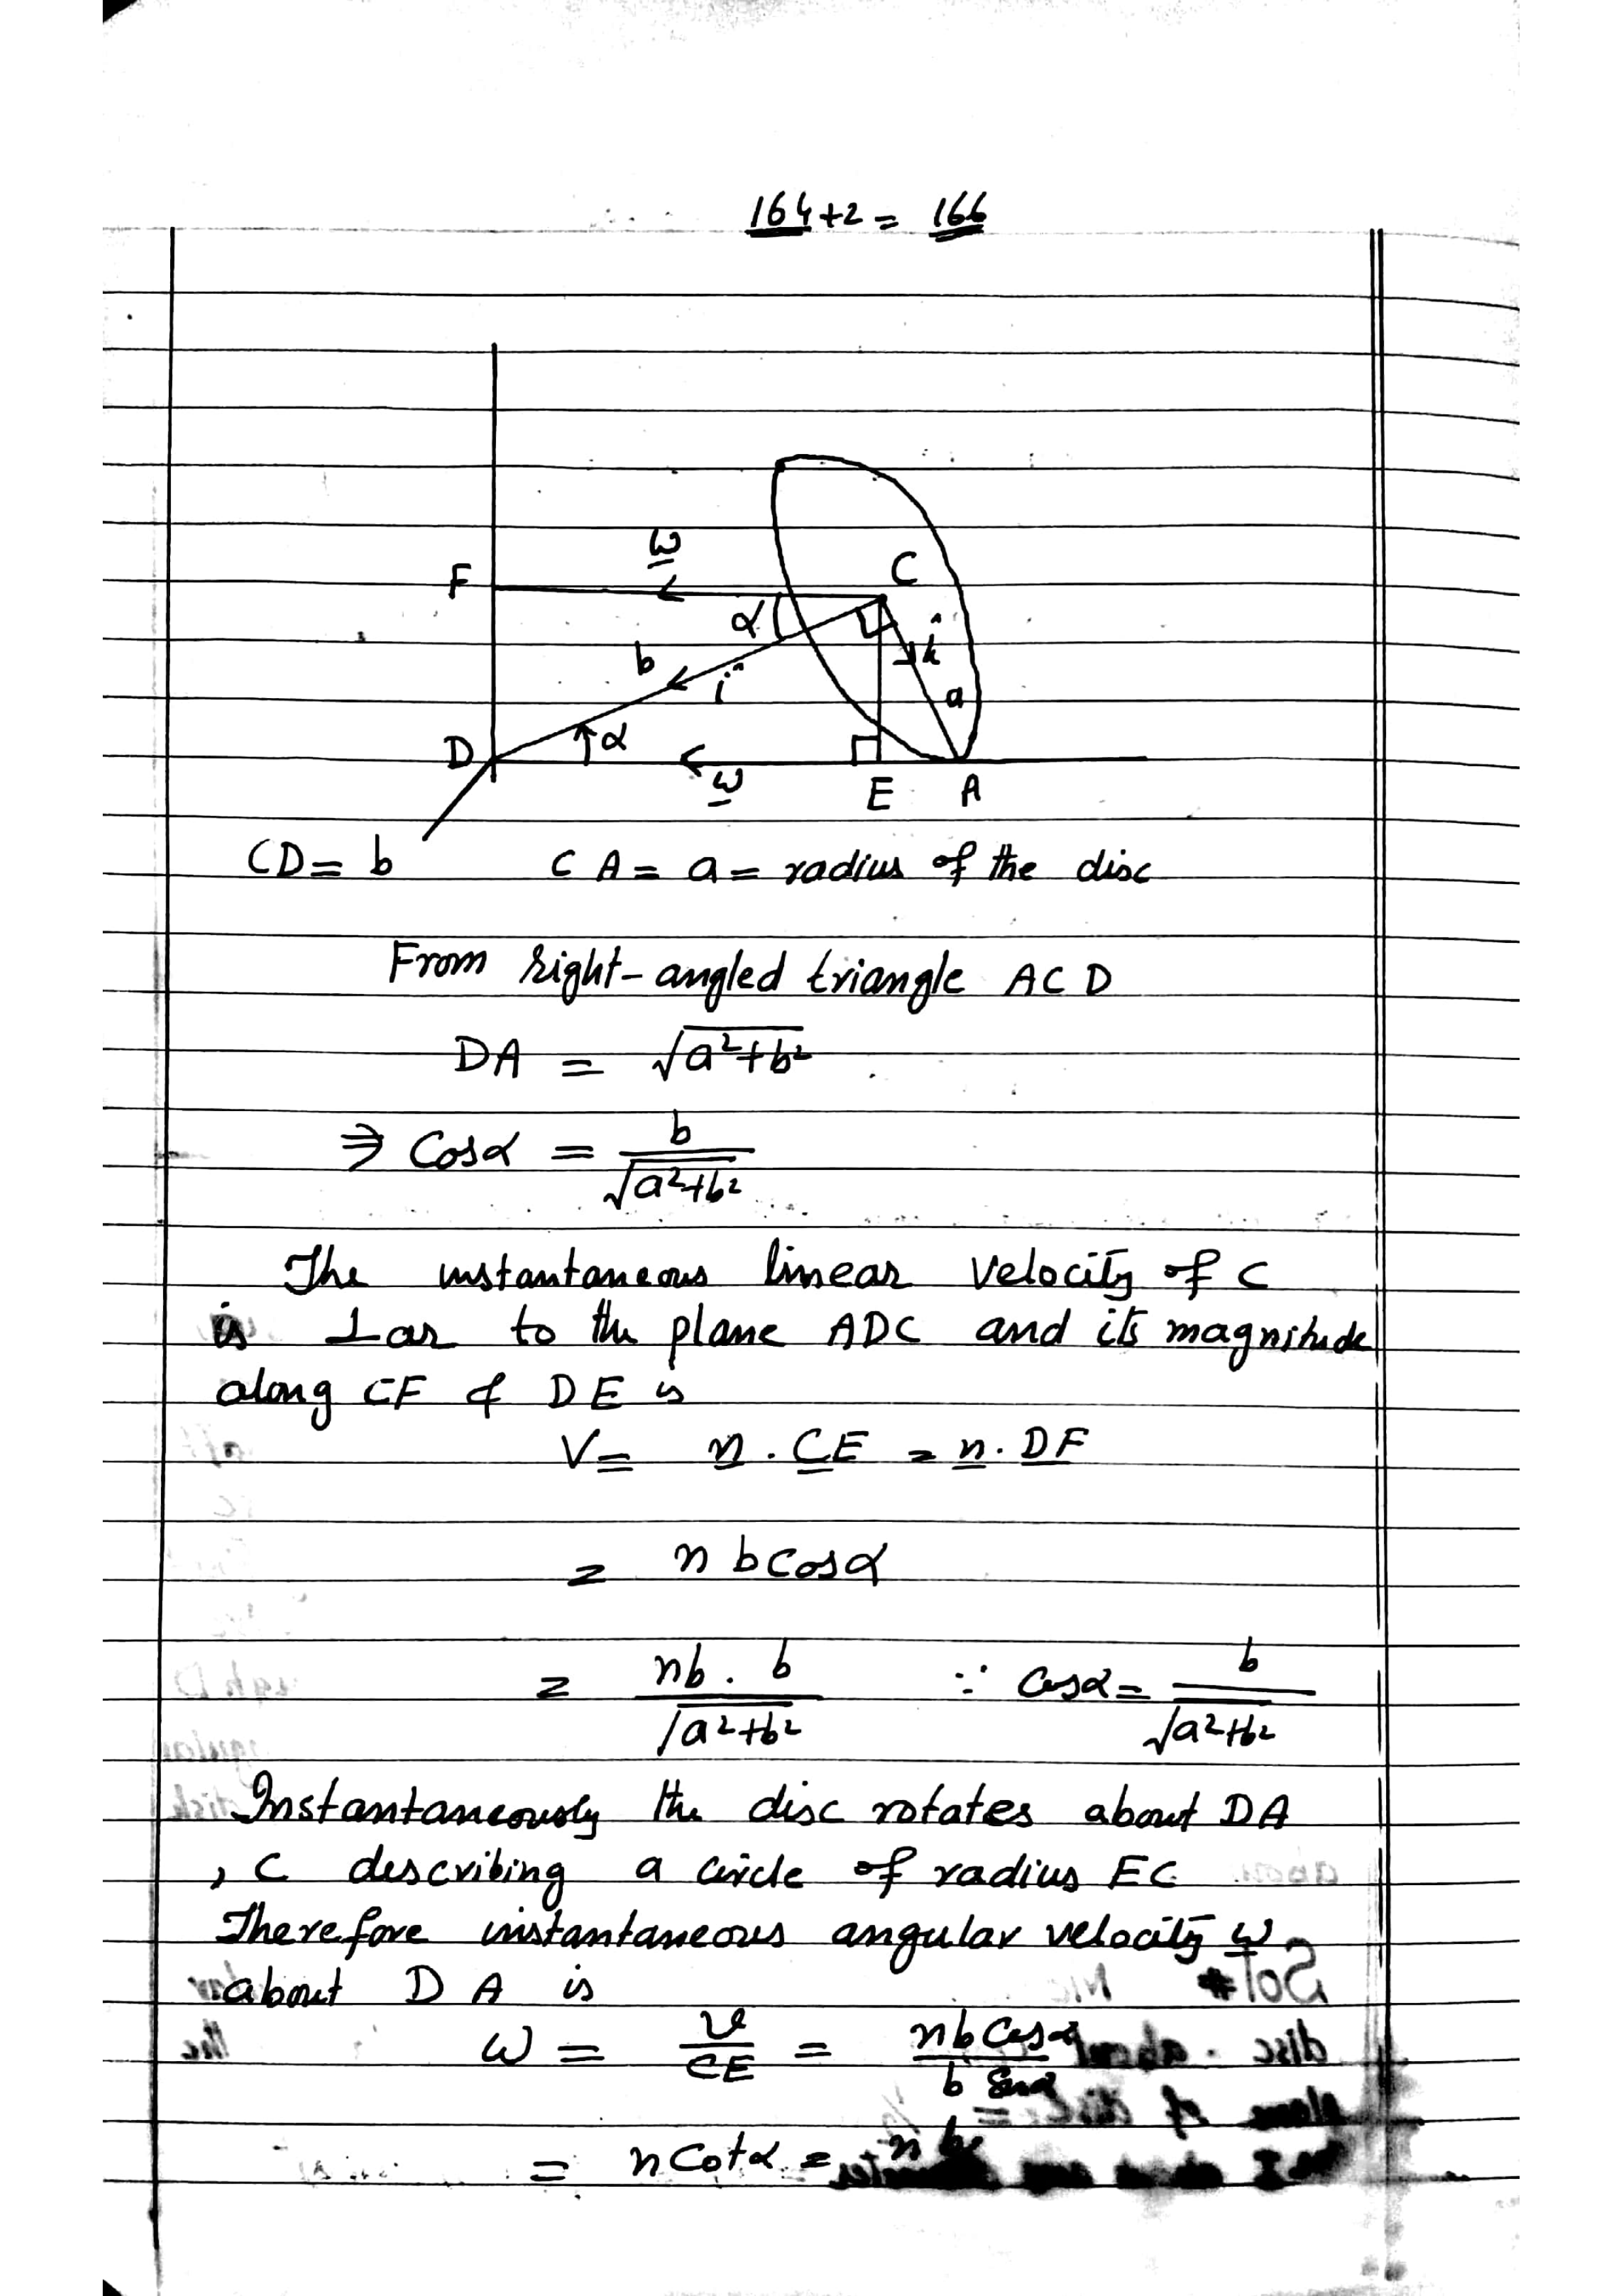 164+2 = 166
F
ω
C
α
b
i
k
a
D
α
ω
E
A
CD = b CA = a = radius of the disc
From right-angled triangle ACD
DA = √a²+b²
⇒ Cosα = b/√a²+b²
The instantaneous linear velocity of C
is ⊥ar to the plane ADC and its magnitude
along CF & DE is
V = n . CE = n . DF
= n b cosα
= nb . b/√a²+b² ∵ Cosα = b/√a²+b²
Instantaneously the disc rotates about DA
, C describing a circle of radius EC.
Therefore instantaneous angular velocity ω
about D A is
ω = v/CE = nb Cosα/b Sinα
= n Cotα = n b